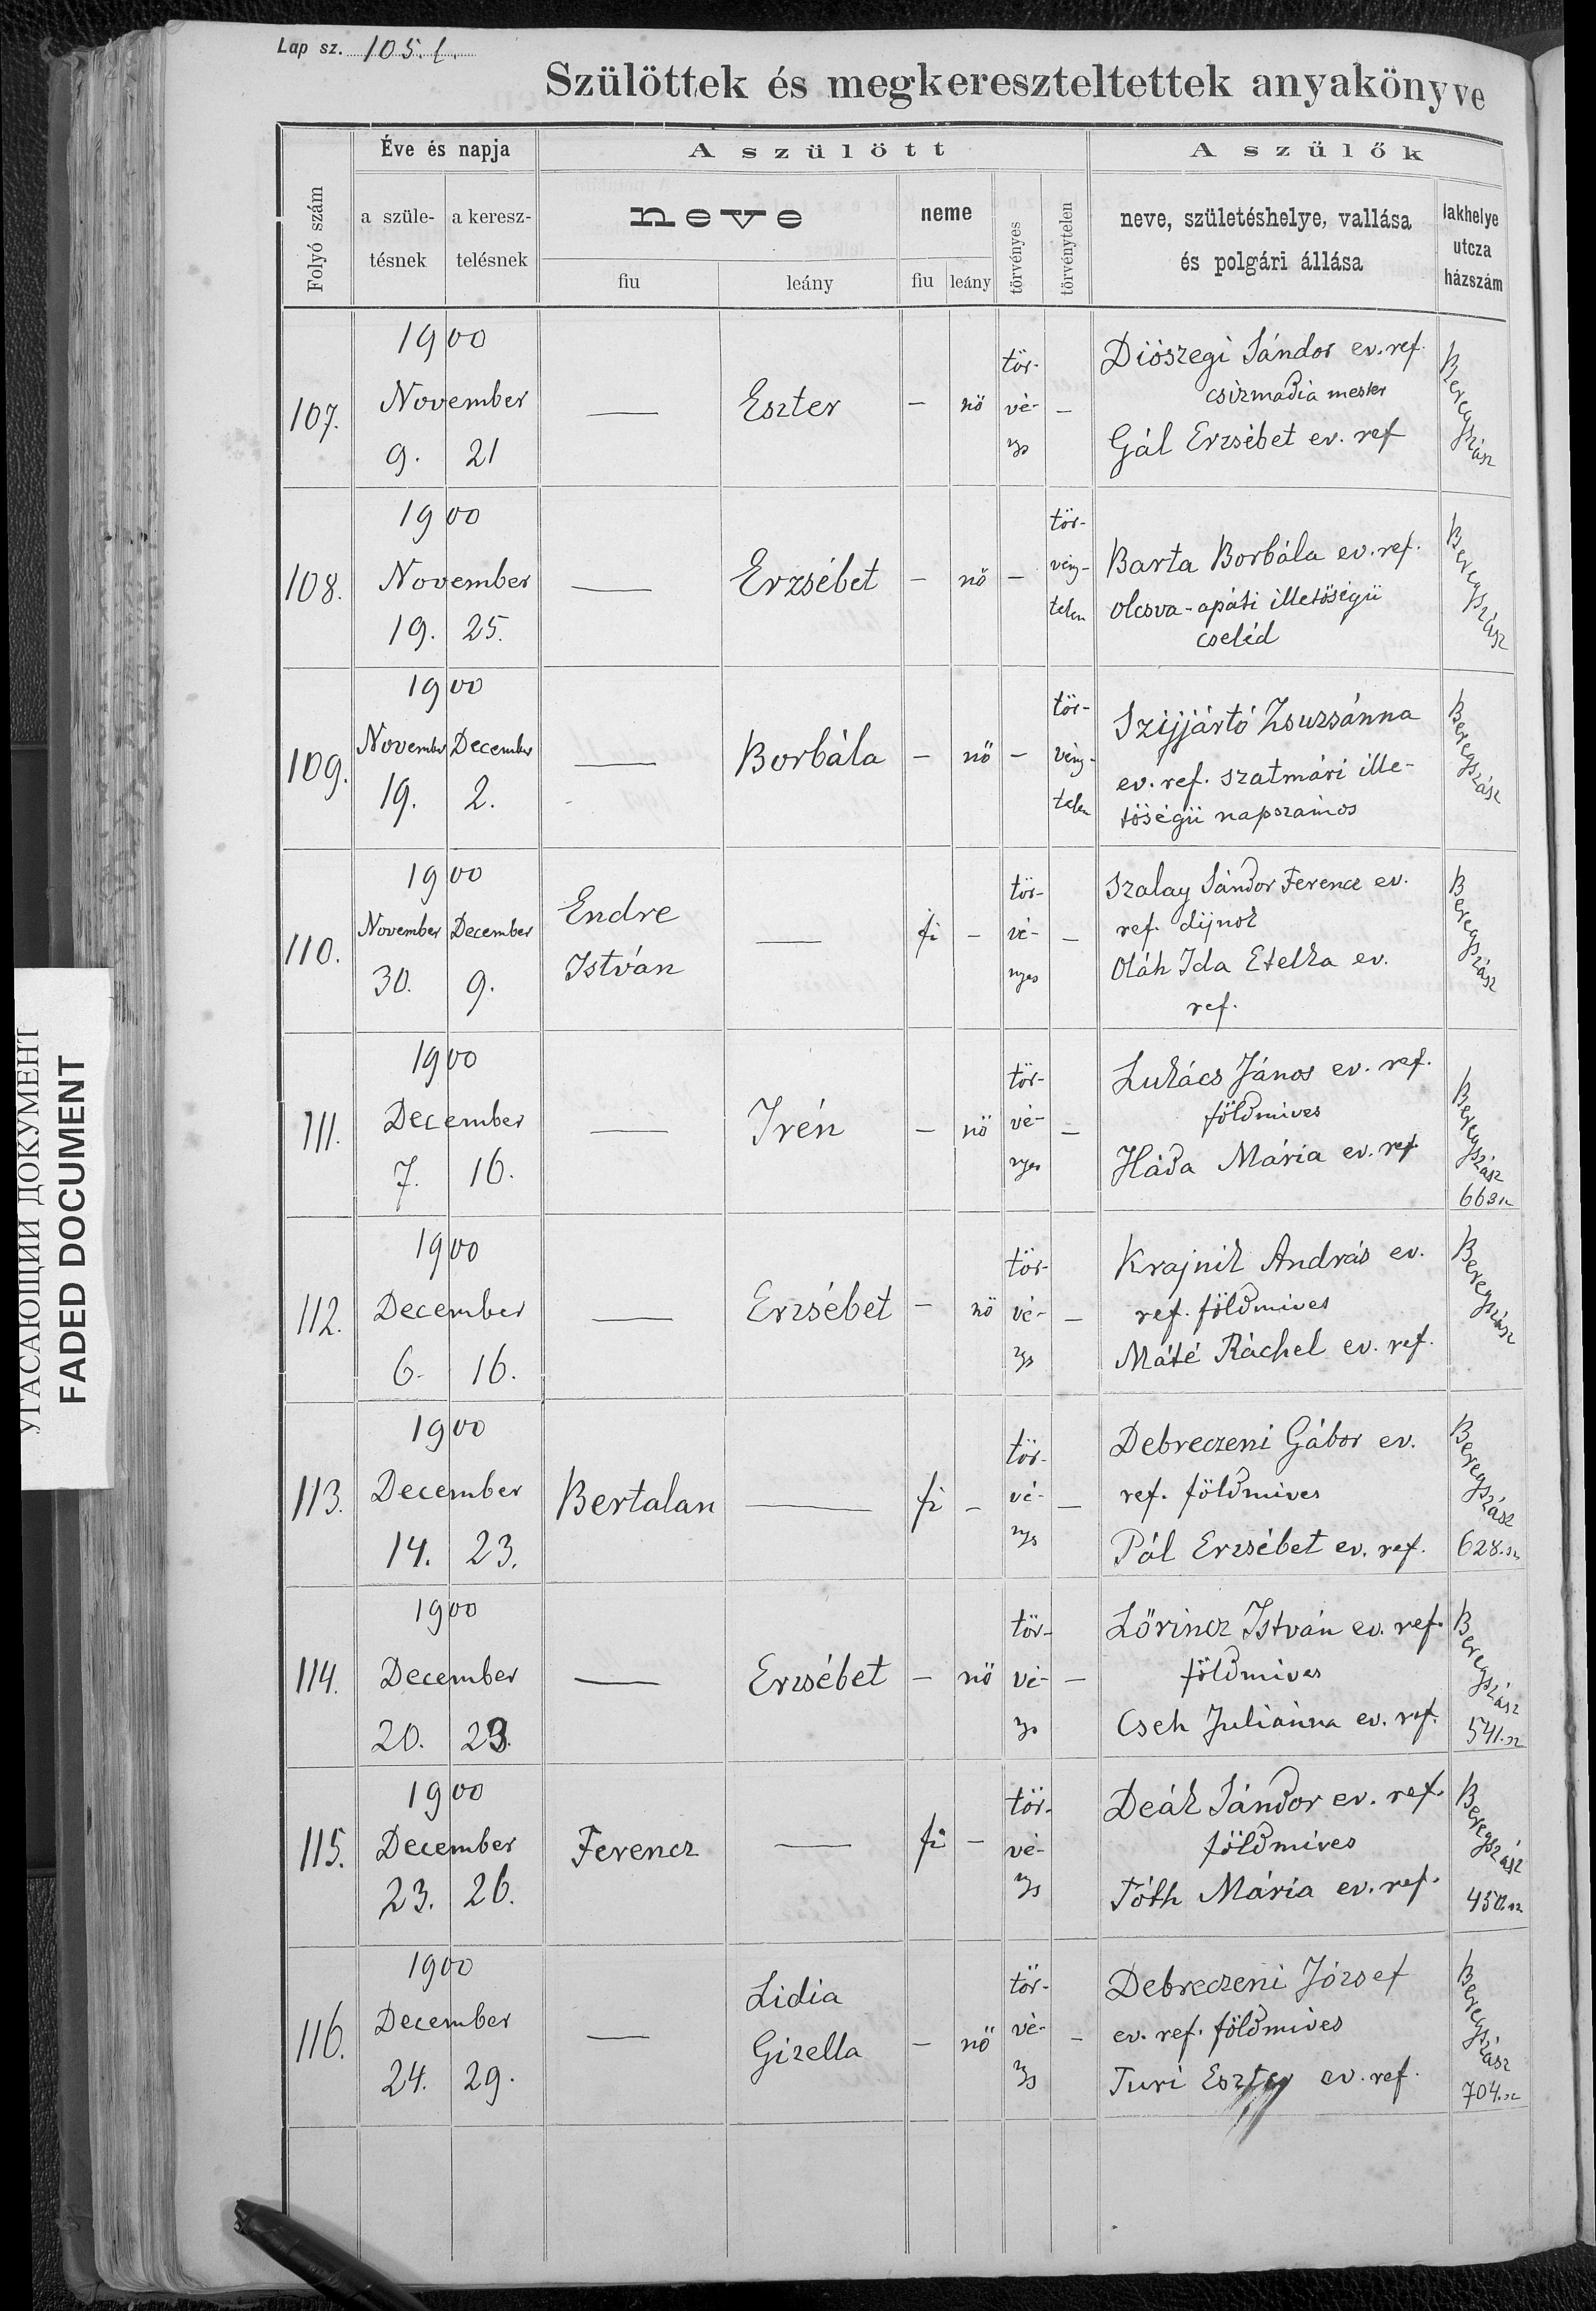 Lap sz. 105. l.
Szülöttek és megkereszteltettek anyakönyve
Folyó szám
Éve és napja
A szülött
A szülők
a szüle-
tésnek
a keresz-
telésnek
neve
fiu
leány
neme
fiu
leány
törvényes
törvénytelen
neve, születéshelye, vallása
és polgári állása
lakhelye
utcza
házszám
1900
107. November 9. 21
— Eszter – nö tör- vé- –
Diószegi Sándor ev. ref.
csizmadia mester
Gál Erzsébet ev. ref
Beregszász
1900
108. November 19. 25.
— Erzsébet – nö – tör- vény- telen
Barta Borbála ev. ref.
olcsva-apáti illetőségü
cseléd
Beregszász
1900
109. November December 19. 2.
— Borbála – nö – tör- vény- telen
Szijjártó Zsuzsánna
ev. ref. szatmári ille-
tőségü napszámos
Beregszász
1900
110. November December 30. 9.
Endre
István
— fi – tör- vé- nyes –
Szalay Sándor Ferencz ev.
ref. dijnok
Oláh Ida Etelka ev.
ref.
Beregszász
1900
111. December 7. 16.
— Irén – nö tör- vé- nyes –
Lukács János ev. ref.
földmives
Háda Mária ev. ref.
Beregszász
1900
112. December 6. 16.
— Erzsébet – nö tör- vé- –
Krajnik András ev.
ref. földmives
Máté Ráchel ev. ref.
Beregszász
1900
113. December 14. 23.
Bertalan — fi – tör- vé- –
Debreczeni Gábor ev.
ref. földmives
Pál Erzsébet ev. ref.
Beregszász
628. sz
1900
114. December 20. 23.
— Erzsébet – nö tör- vé- –
Lőrincz István ev. ref.
földmives
Cseh Juliánna ev. ref.
Beregszász
541. sz
1900
115. December 23. 26.
Ferencz — fi – tör- vé-
Deák Sándor ev. ref.
földmives
Tóth Mária ev. ref.
Beregszász
450. sz
1900
116. December 24. 29.
— Lidia
Gizella
– nö tör- vé- –
Debreczeni József
ev. ref. földmives
Turi Eszter ev. ref.
Beregszász
704. sz
УГАСАЮЩИЙ ДОКУМЕНТ
FADED DOCUMENT